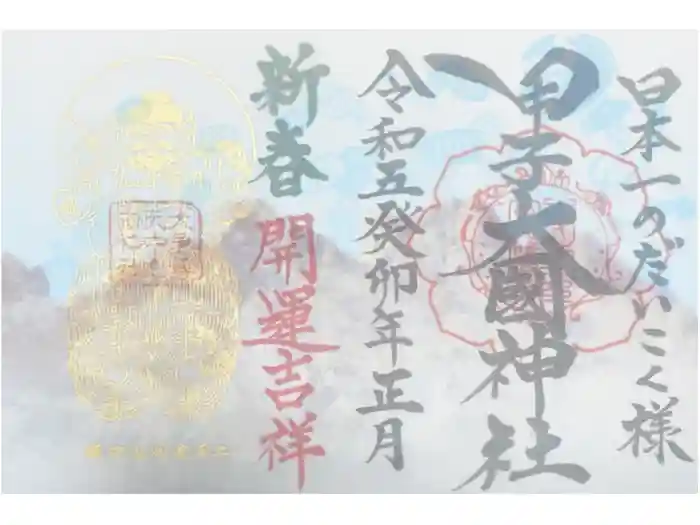 日本一のだいこく様
甲子大國神社
令和五癸卯年正月
新春
開運吉祥